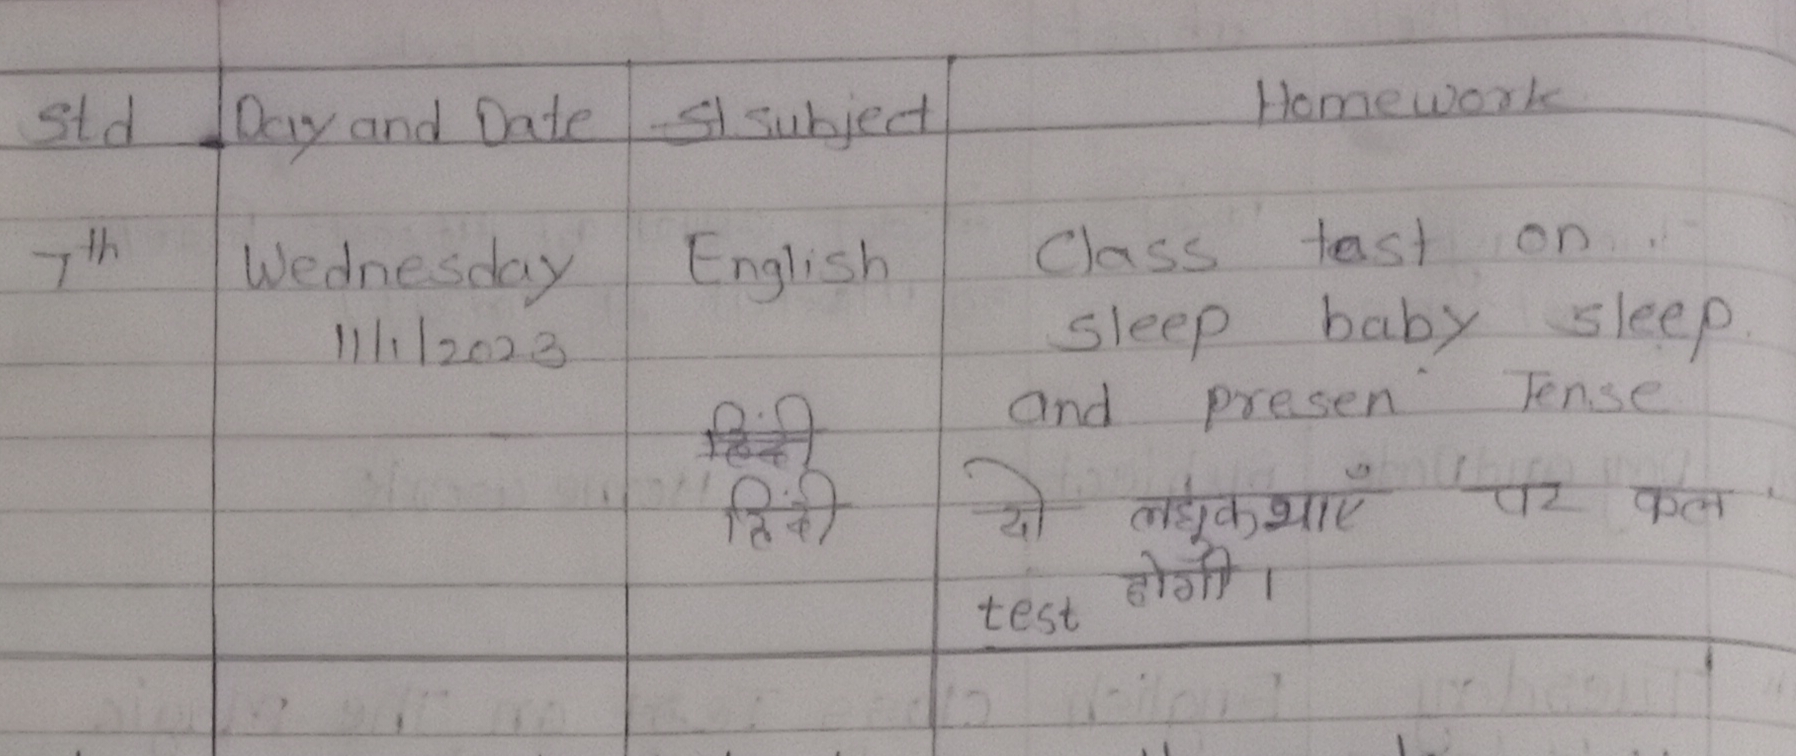 Std Day and Date subject Homework
7th Wednesday English Class test on
11/1/2023 sleep baby sleep
and presen Tense
हिंदी
हिंदी दो लघुकथाएँ पर कल
test होगी।